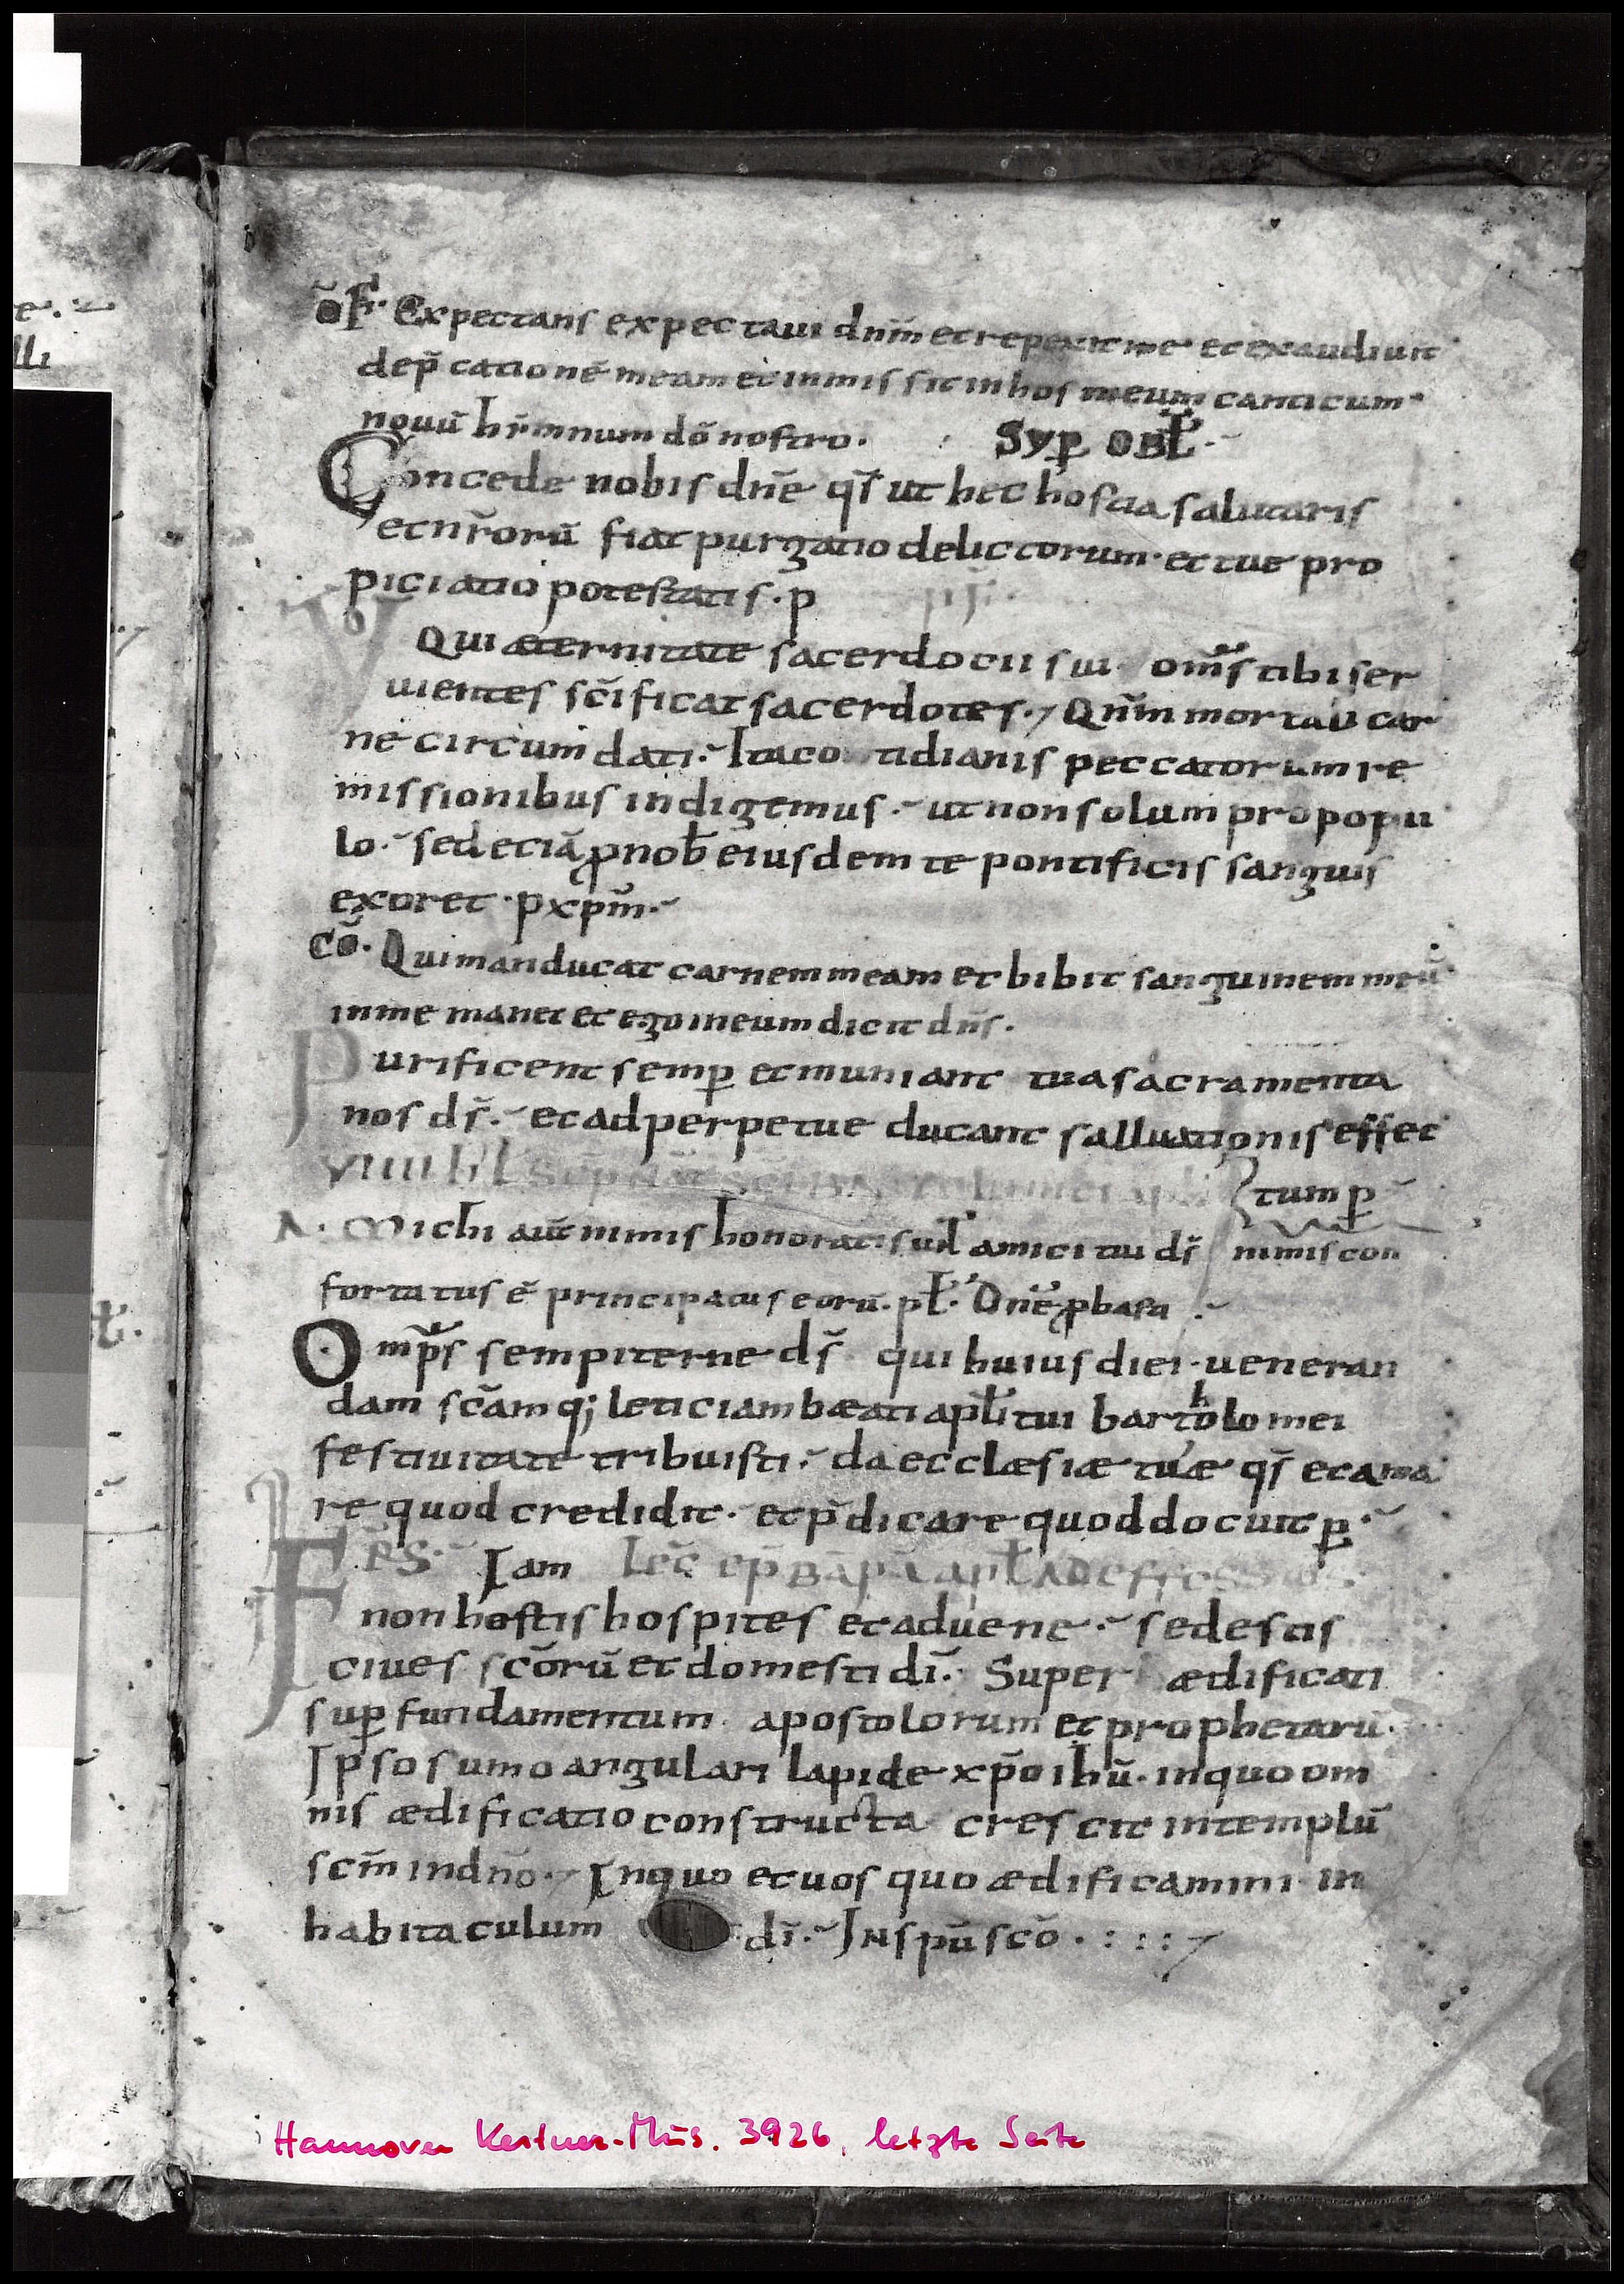 OF̄. Expectans expectaui dn̄m et repexit me et exaudiuit
dep̄cationē meam et inmissit in hos meum canticum
nouū hẏmnum dō nostro. Syꝑ OBŁ
Concede nobis dn̄e qs̄ ut hec hostia salutaris
et nr̄orū fiat purgatio delictorum· et tue pro
piciatio potestatis · p
Qui æternitate sacerdocii sui om̄s tibi ser
uientes sc̄ificat sacerdotes. Qn̄m mortali car
ne circumdati. Ita cotidianis peccatorum re
missionibus indigemus. ut non solum pro popu
lo. sed eciā ꝓ nob̄ eiusdem te pontificis sanguis
exoret · p xp̄m.
CŌ. Qui manducat carnem meam et bibit sanguinem meū
in me manet et ego in eum dicit dn̄s.
Purificent semꝑ et muniant tua sacramenta
nos ds̄. et ad perpetue ducant salluationis effec
VIIII kł
tum ꝑ
A. Michi aūt nimis honorati suñ amici tui ds̄ nimis con
fortatus ē principatus eorū. pł. Dn̄e ꝓbasti
Omp̄s sempiterne ds̄ qui huius diei· ueneran
dam sc̄amq; leticiam bæati apłi tui bartholomei
festiuitate tribuisti. da ecclæsiæ tuæ qs̄ et ama
re quod credidit · et p̄dicare quod docuit ꝑ.
FRS̄. Iam Lec̄ ep̄ BĀ PĀ apłi AD effesios
non hostis hospites et aduene. sed estis
ciues sc̄orū et domesti dī. Super ædificati
suꝑ fundamentum apostolorum et prophetarū.
Ipso sumo angulari lapide xp̄o ih̄ū. in quo om
nis ædificatio constructa crescit in templū
sc̄m in dn̄o. In quo et uos quo ædificamini in
habitaculum dī. IN sp̄ū sc̄o . : : :
Hannover Kestner-Mus. 3926, letzte Seite